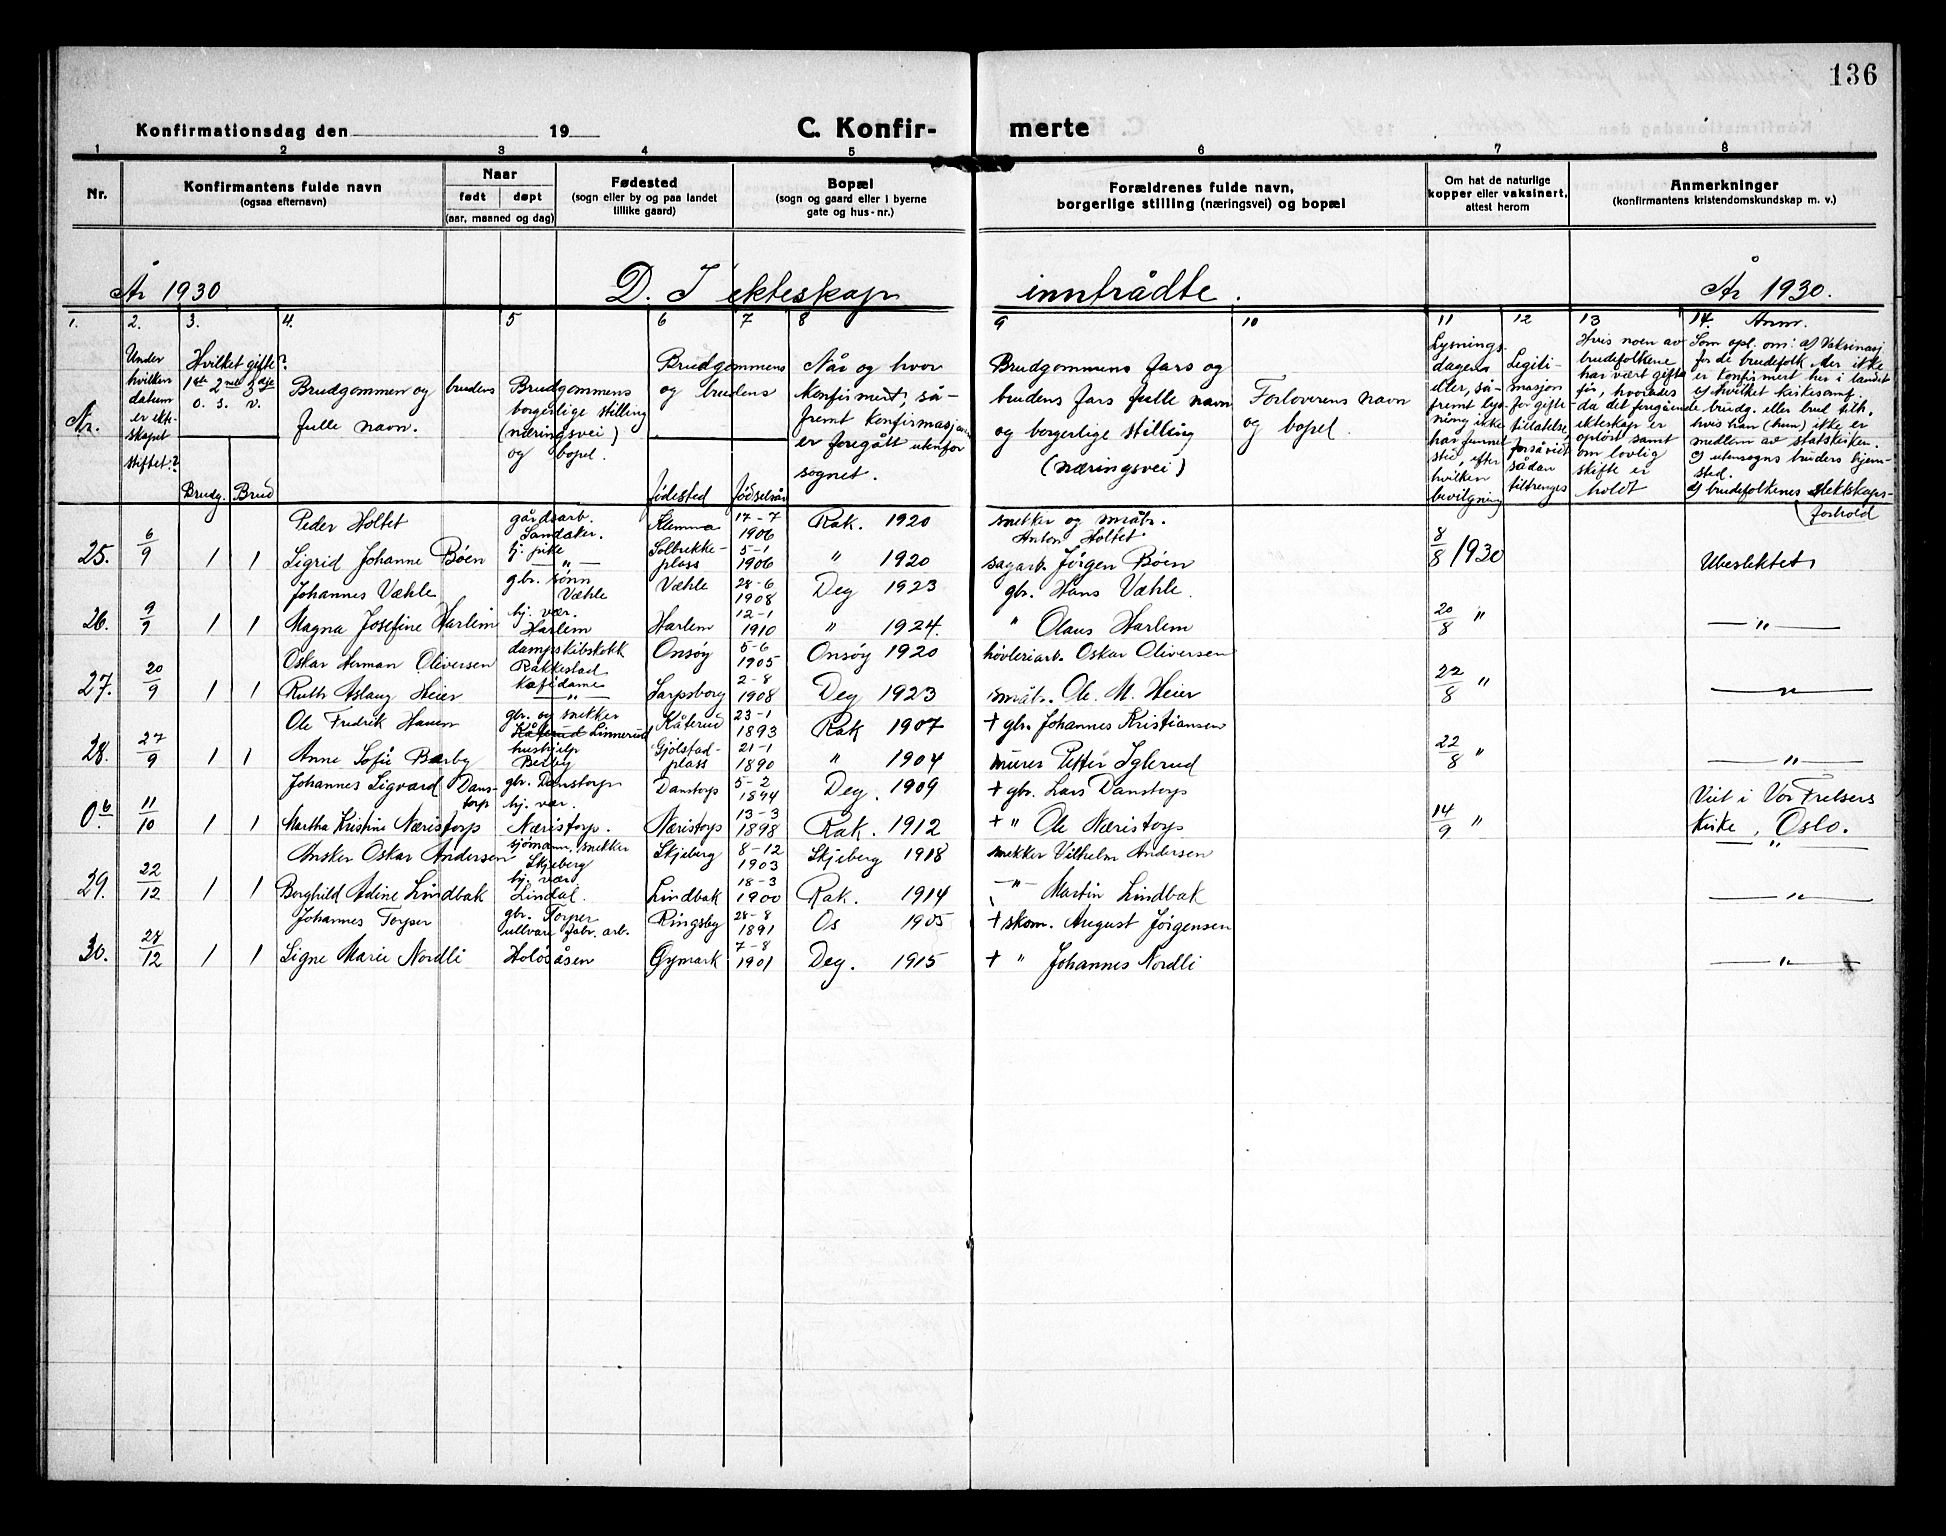 136
Konfirmationsdag den 19
C. Konfirmerte
1 2 3 4 5 6 7 8
Nr.
Konfirmantens fulde navn
(ogsaa efternavn)
Naar
født døpt
(aar, maaned og dag)
Fødested
(sogn eller by og paa landet
tillike gaard)
Bopæl
(sogn og gaard eller i byerne
gate og hus-nr.)
Forældrenes fulde navn,
borgerlige stilling (næringsvei) og bopæl
Om hat de naturlige
kopper eller vaksinert,
attest herom
Anmerkninger
(konfirmantens kristendomskundskap m. v.)
År 1930 D. I ekteskap inntrådte. År 1930.
1. 2. 3. 4. 5 6 7 8 9 10 11 12 13 14. Anm.
Nr.
Under
hvilken
datum
er ekt-
skapet
stiftet?
Hvilket gifte?
1ste 2net 3dje
o. s. v.
Brudg. Brud
Brudgommen og brudens
fulle navn.
Brudgommens
borgerlige stilling
(næringsvei)
og bopel.
Brudgommens
og brudens
fødested fødselsår
Når og hvor
konfirmert, så-
fremt konfirmasjonen
er foregått utenfor
sognet.
Brudgommens fars og
brudens fars fulle navn
og borgerlige stilling
(næringsvei)
Forloverens navn
og bopel.
Lysnings-
dagen
eller, så-
fremt lys-
ning ikke
har funnet
sted, efter
hvilken
bevilgning
Legiti-
masjon
for gifte
tillatelse,
forsåvidt
sådan
tiltrenges
Hvis noen av
brudefolkene
har vært gift
før, hvorledes
da det foregående
ekteskap er
opløst samt
om lovlig
skifte er
holdt
Som opl. om: a) Vaksinasj.
for de brudefolk der ikke
er konfirmert her i landet
b) hvilket kirkesamf.
brudg. eller brud tilh.
hvis han (hun) ikke er
medlem av statskirken.
c) utensogns bruders hjem-
sted.
d) brudefolkenes slektskaps-
forhold
Peder Holtet gårdsarb. Landaker. Klemma 17-7 1906 Rak. 1920 snekker og småbr. Anton Holtet
25. 6/9 1 1 Sigrid Johanne Bøen hj. pike —"— Solbrekke-plass 5-1 1906 " 1920 sagarb. Jørgen Bøen 8/8 1930 Ubeslektet
Johannes Væhle gbr. sønn Væhle Væhle 28-6 1908 Deg 1923 gbr. Hans Væhle.
26. 9/9 1 1 Magna Josefine Harlem hj. vær. Harlem Harlem 12-1 1910 " 1924. " Olaus Harlem 20/8 " —"—
Oskar Herman Oliversen dampskibskokk Rakkestad Onsøy 5-6 1905 Onsøy 1920 høvleriarb. Oskar Oliversen
27. 20/9 1 1 Ruth Aslaug Heier Kafédame —"— Sarpsborg 2-8 1908 Deg 1923 småbr. Ole M. Heier 22/8 " —"—
Ole Fredrik Hauen gbr. og snekker Kåterud Linnerud Kåterud 23-1 1893 Rak 1907 + gbr. Johannes Kristiansen
28. 27/9 1 1 Anne Sofie Bærby hushjelp Gjølstad-plass 21-1 1890 " 1904 murer Petter Iglerud 22/8 " —"—
Johannes Sigvard Danstorp gbr. Danstorp Danstorp 5-2 1894 Deg. 1909 + gbr. Lars Danstorp Viet i Vor Frelsers
0.b 11/10 1 1 Martha Kristine Næristorp hj. vær. Næristorp. Næristorp 13-3 1898 Rak. 1912 + " Ole Næristorp 14/9 " Kirke, Oslo.
Ansker Oskar Andersen sjømann, snekker Skjeberg Skjeberg 8-12 1903 Skjeberg 1918 snekker Vilhelm Andersen —"—
29. 22/12 1 1 Borghild Adine Lindbak hj. vær Lindal. Lindbak 18-3 1900 Rak. 1914 —"— Martin Lindbak —"—
Johannes Torper gbr. Torper Ringsby 28-8 1891 Os 1905 + skom. August Jørgensen
30. 28/12 1 1 Signe Marie Nordli ullvare fabr. arb. Holøsåsen Gymark 7-8 1901 Deg. 1915 + " Johannes Nordli —"—